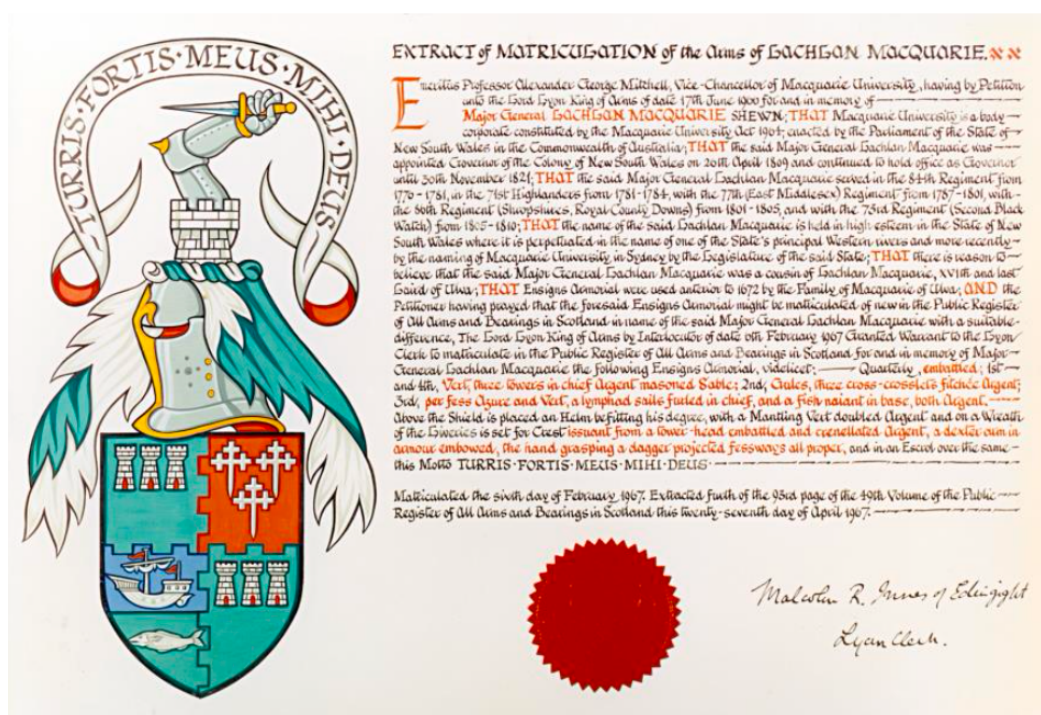 TURRIS·FORTIS·MEUS·MIHI·DEUS
EXTRACT of MATRICULATION of the Arms of LACHLAN MACQUARIE.
Emeritus Professor Alexander George Mitchell, Vice-Chancellor of Macquarie University, having by Petition
unto the Lord Lyon King of Arms of date 17th June 1966 for and in memory of
Major General LACHLAN MACQUARIE SHEWN; THAT Macquarie University is a body
corporate constituted by the Macquarie University Act 1964; enacted by the Parliament of the State of
New South Wales in the Commonwealth of Australia; THAT the said Major General Lachlan Macquarie was
appointed Governor of the Colony of New South Wales on 26th April 1809 and continued to hold office as Governor
until 30th November 1821; THAT the said Major General Lachlan Macquarie served in the 84th Regiment from
1776 - 1781, in the 71st Highlanders from 1781-1784, with the 77th (East Middlesex) Regiment from 1787-1801, with
the 86th Regiment (Shropshires, Royal County Downs) from 1801 - 1805, and with the 73rd Regiment (Second Black
Watch) from 1805 - 1810; THAT the name of the said Lachlan Macquarie is held in high esteem in the State of New
South Wales where it is perpetuated in the name of one of the State's principal Western rivers and more recently
by the naming of Macquarie University in Sydney by the Legislature of the said State; THAT there is reason to
believe that the said Major General Lachlan Macquarie was a cousin of Lachlan Macquarie, XVIth and last
Laird of Ulva; THAT Ensigns Armorial were used anterior to 1672 by the Family of Macquarie of Ulva; AND the
Petitioner having prayed that the foresaid Ensigns Armorial might be matriculated of new in the Public Register
of All Arms and Bearings in Scotland in name of the said Major General Lachlan Macquarie with a suitable
difference, The Lord Lyon King of Arms by Interlocutor of date 6th February 1967 Granted Warrant to the Lyon
Clerk to matriculate in the Public Register of All Arms and Bearings in Scotland for and in memory of Major
General Lachlan Macquarie the following Ensigns Armorial, videlicet: Quarterly, embattled; 1st
and 4th, Vert, three towers in chief Argent masoned Sable; 2nd, Gules, three cross-crosslets fitchée Argent;
3rd, per fess Azure and Vert, a lymphad sails furled in chief, and a fish naiant in base, both Argent.
Above the Shield is placed an Helm befitting his degree, with a Mantling Vert doubled Argent and on a Wreath
of the Liveries is set for Crest issuant from a tower-head embattled and crenellated Argent, a dexter arm in
armour embowed, the hand grasping a dagger projected fessways all proper, and in an Escrol over the same
this Motto TURRIS·FORTIS·MEUS·MIHI·DEUS
Matriculated the sixth day of February 1967. Extracted furth of the 93rd page of the 49th Volume of the Public
Register of All Arms and Bearings in Scotland this twenty-seventh day of April 1967.
Malcolm R. Innes of Edingight
Lyon Clerk.